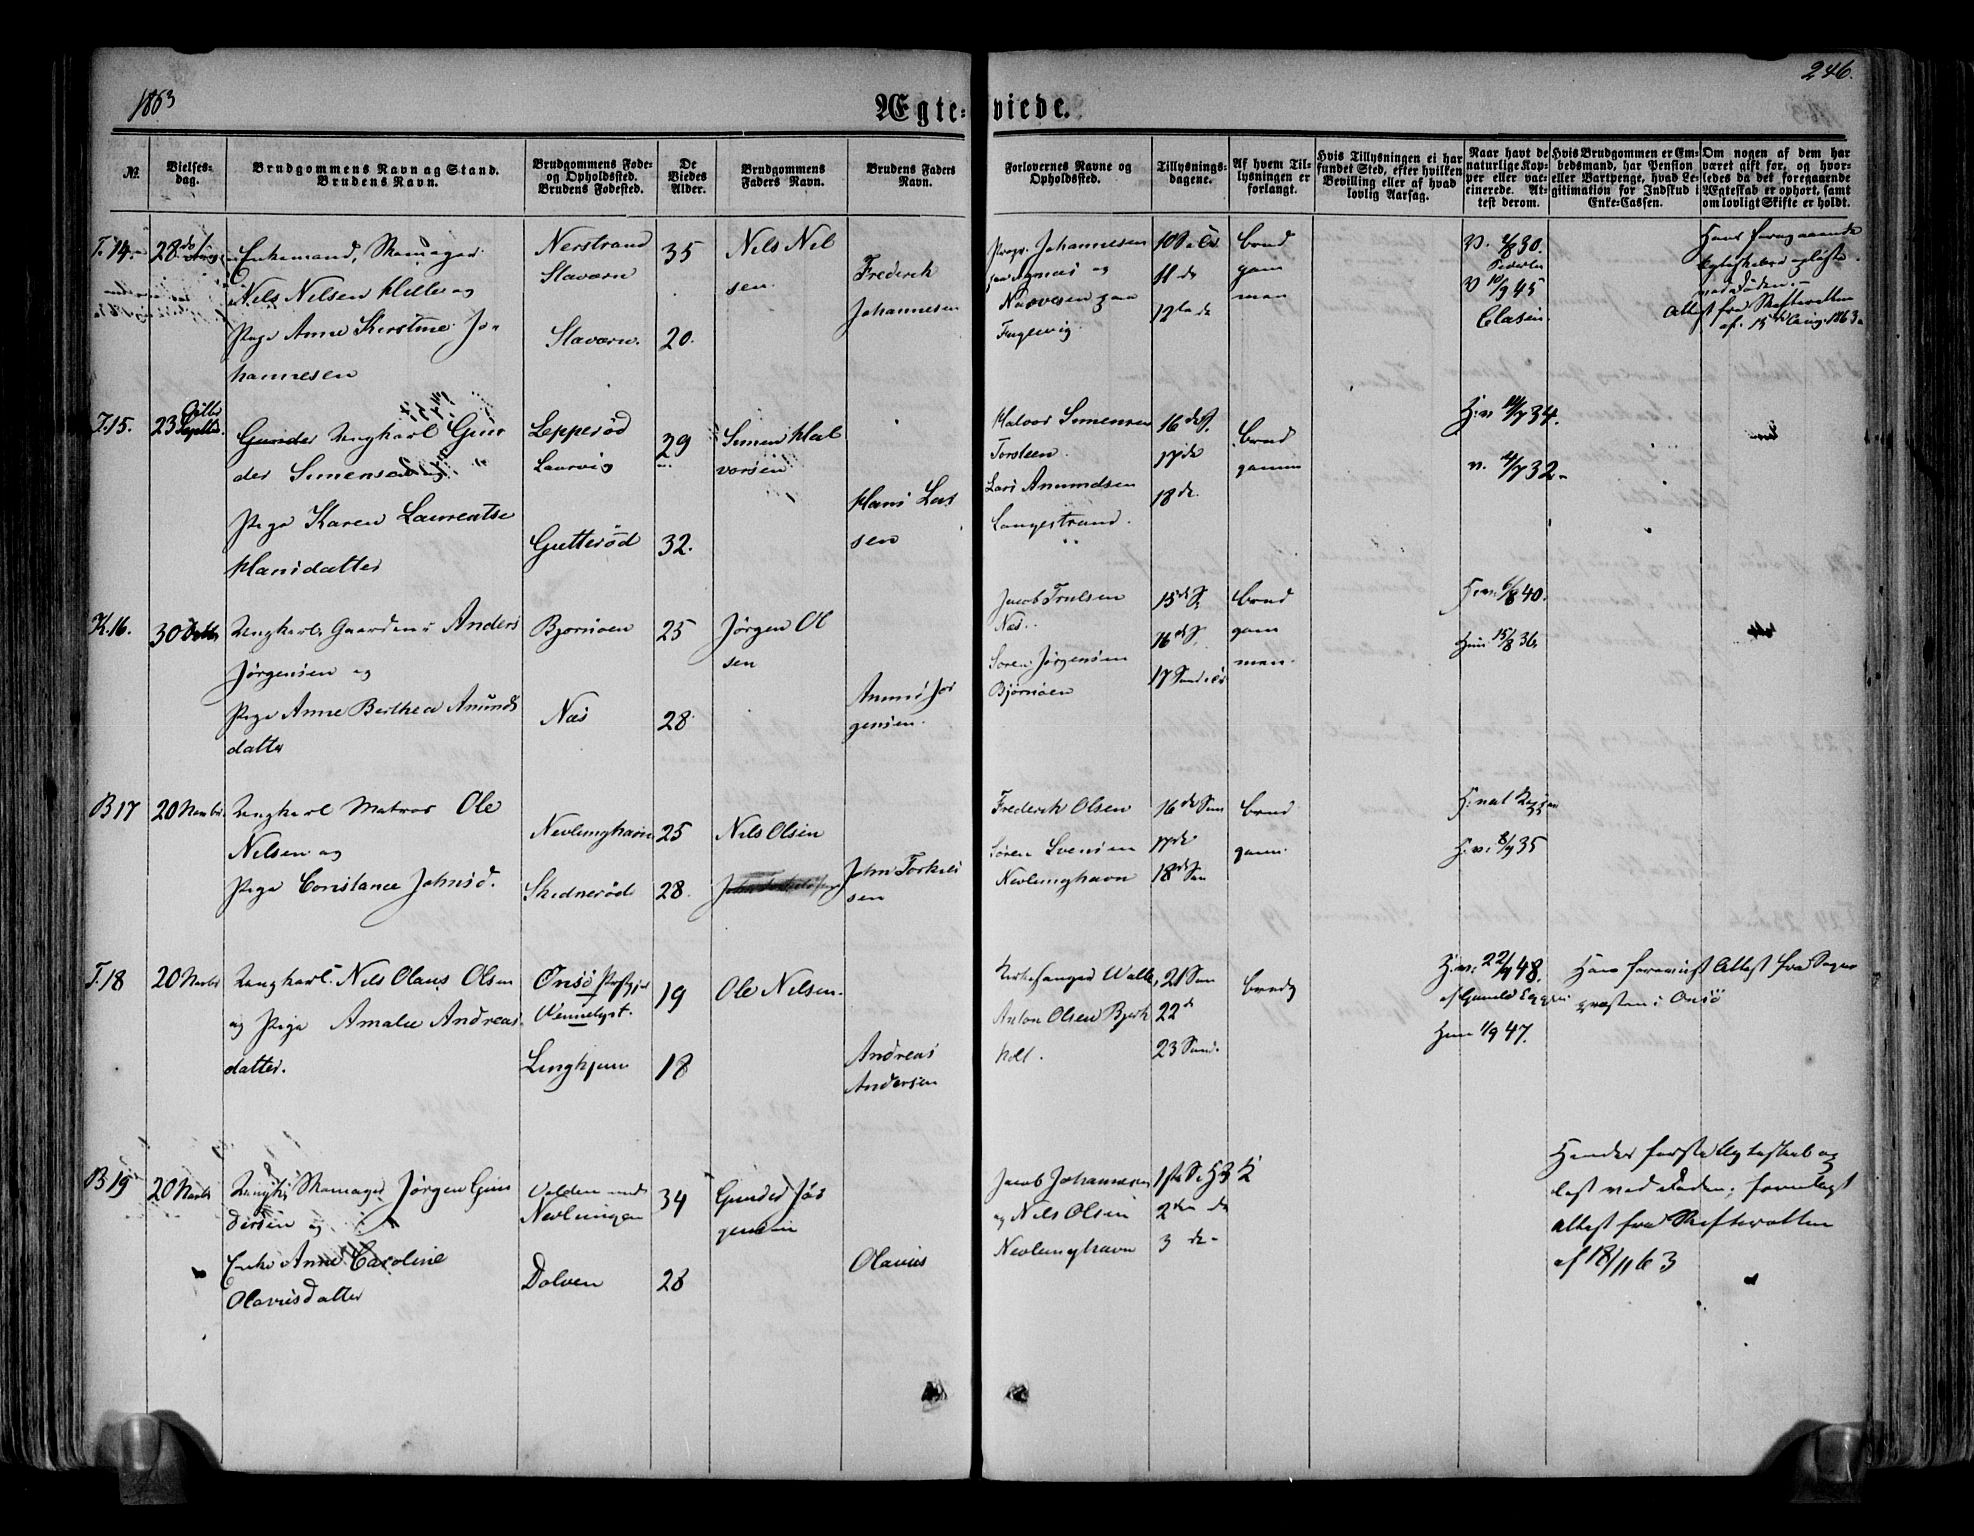 1863
246.
Ægte-viede.
No.
Vielses-
dag.
Brudgommens Navn og Stand.
Brudens Navn.
Brudgommens Føde-
og Opholdssted.
Brudens Fødested.
De
Viedes
Alder.
Brudgommens
Faders Navn.
Brudens Faders
Navn.
Forlovernes Navne og
Opholdssted.
Tillysnings-
dagene.
Af hvem Til-
lysningen er
forlangt.
Hvis Tillysningen ei har
fundet Sted, efter hvilken
Bevilling eller af hvad
lovlig Aarsag.
Naar havt de
naturlige Kop-
per eller vac-
cinerede. At-
test derom.
Hvis Brudgommen er Em-
bedsmand, har Pension
eller Vartpenge, hvad Le-
gitimation for Indskud i
Enke-Cassen.
Om nogen af dem har
været gift før, og hvor-
ledes da det foregaaende
Ægteskab er ophørt, samt
om lovligt Skifte er holdt.
T. 14. 28
Enkemand, Skomager
Nels Nelsen Helle og
Pige Anne Kirstine Jo-
hannesen
Nerstrand
Staværn
Staværn.
35
20.
Nels Nel
sen.
Frederek
Johannesen
Johannesen
og
Naevesen paa
Fuglevig
10
11 de
12te de
brud
gom
man
V. 2/8 30.
V 10/9 45
Clasen
Hans foregaaende
Egteskab opløst
ved Døden.
Attest fra Skifteretten
af. 15de Aug. 1863.
T. 15. 23
Gunder Ungkarl Gun
der Simensen og
Pige Karen Laurentse
Hansdatter
Lepperød
Laurvig
Gutterød
29
32.
Simen Hal
vorsen
Hans Lar
sen
Halvor Simensen
Torsteen
Lars Anundsen
Langestrand.
16 de S.
17 de
18 de.
brud
gomm
H. v. 14/7 34.
v. 4/7 32
K. 16. 30 Octbr
Ungkarl Gaardm: Anders
Jørgensen og
Pige Anne Berthea Anunds
datter
Bjørnøen
Næs
25
28
Jørgen Ol
sen
Anund Jør
gensen.
Jacob Trulsen
Næs.
Søren Jørgensen
Bjørnøen
15 de S
16 de S.
17 Sund.
brud
gom
man.
H. v. 6/8 40.
Hun 15/8 36
B 17 20 Novbr.
Ungkarl Matros Ole
Nelsen og
Pige Constance Johnsd.
Nevlunghavn
Skidnerød
25
28.
Nels Olsen
John Torkels
sen
Frederek Olsen
Søren Svensen
Nevlunghavn
16 de Sun
17 de
18 de Sun
brud
gom.
H. nat
H. v. 8/9 35
T. 18 20 Novbr
Ungkarl Nels Olaus Olsen
og Pige Amalie Andreas
datter.
Onsø Præstgjd
Vennelyst.
Lunghjem
19
18
Ole Nelsen.
Andreas
Andersen
Kirkesanger Walle,
Anton Olsen Bjerk
holt.
21 Sun
22 d
23 Sund.
brudg
H. v. 22/7 48.
Hun 1/9 47.
Ham foreviist Attest fra Sogne
præsten i Onsø
B 19 20 Novbr
Ungk. Skomager Jørgen Gun
dersen og
Enke Anne Caroline
Olaviusdatter
Valden ved
Nevlungen
Dolven
34
28
Gunder Jør
gensen
Olavius
Jacob Johannesen
og Nels Olsen
Nevlunghavn
1ste S.
2den de
3 de
Hendes første Egteskab op
løst ved Døden; fremlagt
Attest fra Skifteretten
af 18/11 63